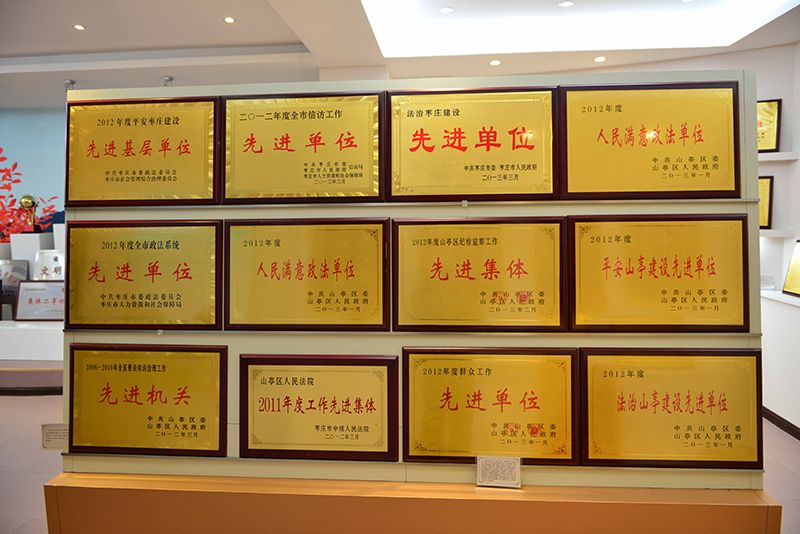 2012年度平安枣庄建设
先进基层单位
中共枣庄市委政法委员会
枣庄市社会管理综合治理委员会
二〇一二年度全市信访工作
先进单位
中共枣庄市委
枣庄市人民政府
信访局
枣庄市人力资源和社会保障局
二〇一三年三月
法治枣庄建设
先进单位
中共枣庄市委 枣庄市人民政府
二〇一三年三月
2012年度
人民满意政法单位
中共山亭区委
山亭区人民政府
二〇一三年三月
2012年度全市政法系统
先进单位
中共枣庄市委政法委员会
枣庄市人力资源和社会保障局
2012年度
人民满意政法单位
中共山亭区委
山亭区人民政府
二〇一三年一月
2012年度山亭区纪检监察工作
先进集体
中共山亭区委
山亭区人民政府
二〇一三年二月
2012年度
平安山亭建设先进单位
中共山亭区委
山亭区人民政府
二〇一三年一月
2006-2010年全区普法依法治理工作
先进机关
中共山亭区委
山亭区人民政府
二〇一二年三月
山亭区人民法院
2011年度工作先进集体
枣庄市中级人民法院
二〇一二年三月
2012年度群众工作
先进单位
中共山亭区委
山亭区人民政府
二〇一三年一月
2012年度
法治山亭建设先进单位
中共山亭区委
山亭区人民政府
二〇一三年一月
文明
集体二等功